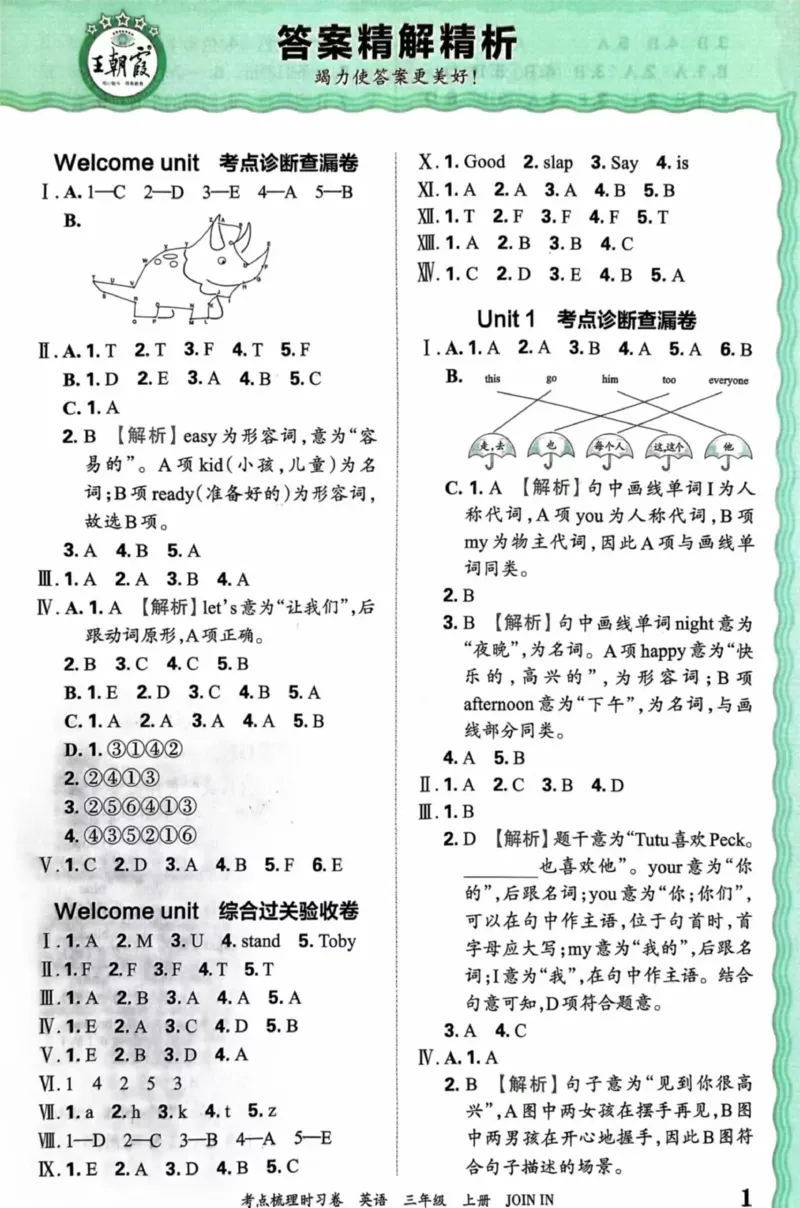 王朝霞
答案精解精析
竭力使答案更美好!
Welcome unit 考点诊断查漏卷
Ⅰ. A. 1—C 2—D 3—E 4—A 5—B
B.
Ⅱ. A. 1. T 2. T 3. F 4. T 5. F
B. 1. D 2. E 3. A 4. B 5. C
C. 1. A
2. B 【解析】easy为形容词,意为“容
易的”。A项kid(小孩,儿童)为名
词;B项ready(准备好的)为形容词,
故选B项。
3. A 4. B 5. A
Ⅲ. 1. A 2. A 3. B 4. A
Ⅳ. A. 1. A 【解析】let's意为“让我们”,后
跟动词原形,A项正确。
2. B 3. C 4. C 5. B
B. 1. E 2. D 3. C 4. B 5. A
C. 1. A 2. A 3. A 4. A 5. B
D. 1. ③①④②
2. ②④①③
3. ②⑤⑥④①③
4. ④③⑤②①⑥
Ⅴ. 1. C 2. D 3. A 4. B 5. F 6. E
Welcome unit 综合过关验收卷
Ⅰ. 1. A 2. M 3. U 4. stand 5. Toby
Ⅱ. 1. F 2. F 3. F 4. T 5. T
Ⅲ. 1. A 2. B 3. A 4. A 5. A
Ⅳ. 1. E 2. A 3. C 4. D 5. B
Ⅴ. 1. E 2. B 3. D 4. A
Ⅵ. 1 4 2 5 3
Ⅶ. 1. a 2. h 3. k 4. t 5. z
Ⅷ. 1—D 2—C 3—B 4—A 5—E
Ⅸ. 1. E 2. A 3. D 4. B 5. C
Ⅹ. 1. Good 2. slap 3. Say 4. is
Ⅺ. 1. A 2. A 3. A 4. B 5. B
Ⅻ. 1. T 2. F 3. F 4. F 5. T
XIII. 1. A 2. B 3. B 4. C
XIV. 1. C 2. D 3. E 4. B 5. A
Unit 1 考点诊断查漏卷
Ⅰ. A. 1. A 2. A 3. B 4. A 5. A 6. B
B. this go him too everyone
走,去 也 每个人 这,这个 他
C. 1. A 【解析】句中画线单词I为人
称代词,A项you为人称代词,B项
my为物主代词,因此A项与画线单
词同类。
2. B
3. B 【解析】句中画线单词night意为
“夜晚”,为名词。A项happy意为“快
乐的,高兴的”,为形容词;B项
afternoon意为“下午”,为名词,与画
线部分同类。
4. A 5. B
Ⅱ. 1. A 2. C 3. B 4. D
Ⅲ. 1. B
2. D 【解析】题干意为“Tutu喜欢Peck。
______也喜欢他”。your意为“你
的”,后跟名词;you意为“你;你们”,
可以在句中作主语,位于句首时,首
字母应大写;my意为“我的”,后跟名
词;I意为“我”,在句中作主语。结合
句意可知,D项符合题意。
3. A 4. C
Ⅳ. A. 1. A
2. B 【解析】句子意为“见到你很高
兴”,A图中两女孩在摆手再见,B图
中两男孩在开心地握手,因此B图符
合句子描述的场景。
考点梳理时习卷 英语 三年级 上册 JOIN IN 1